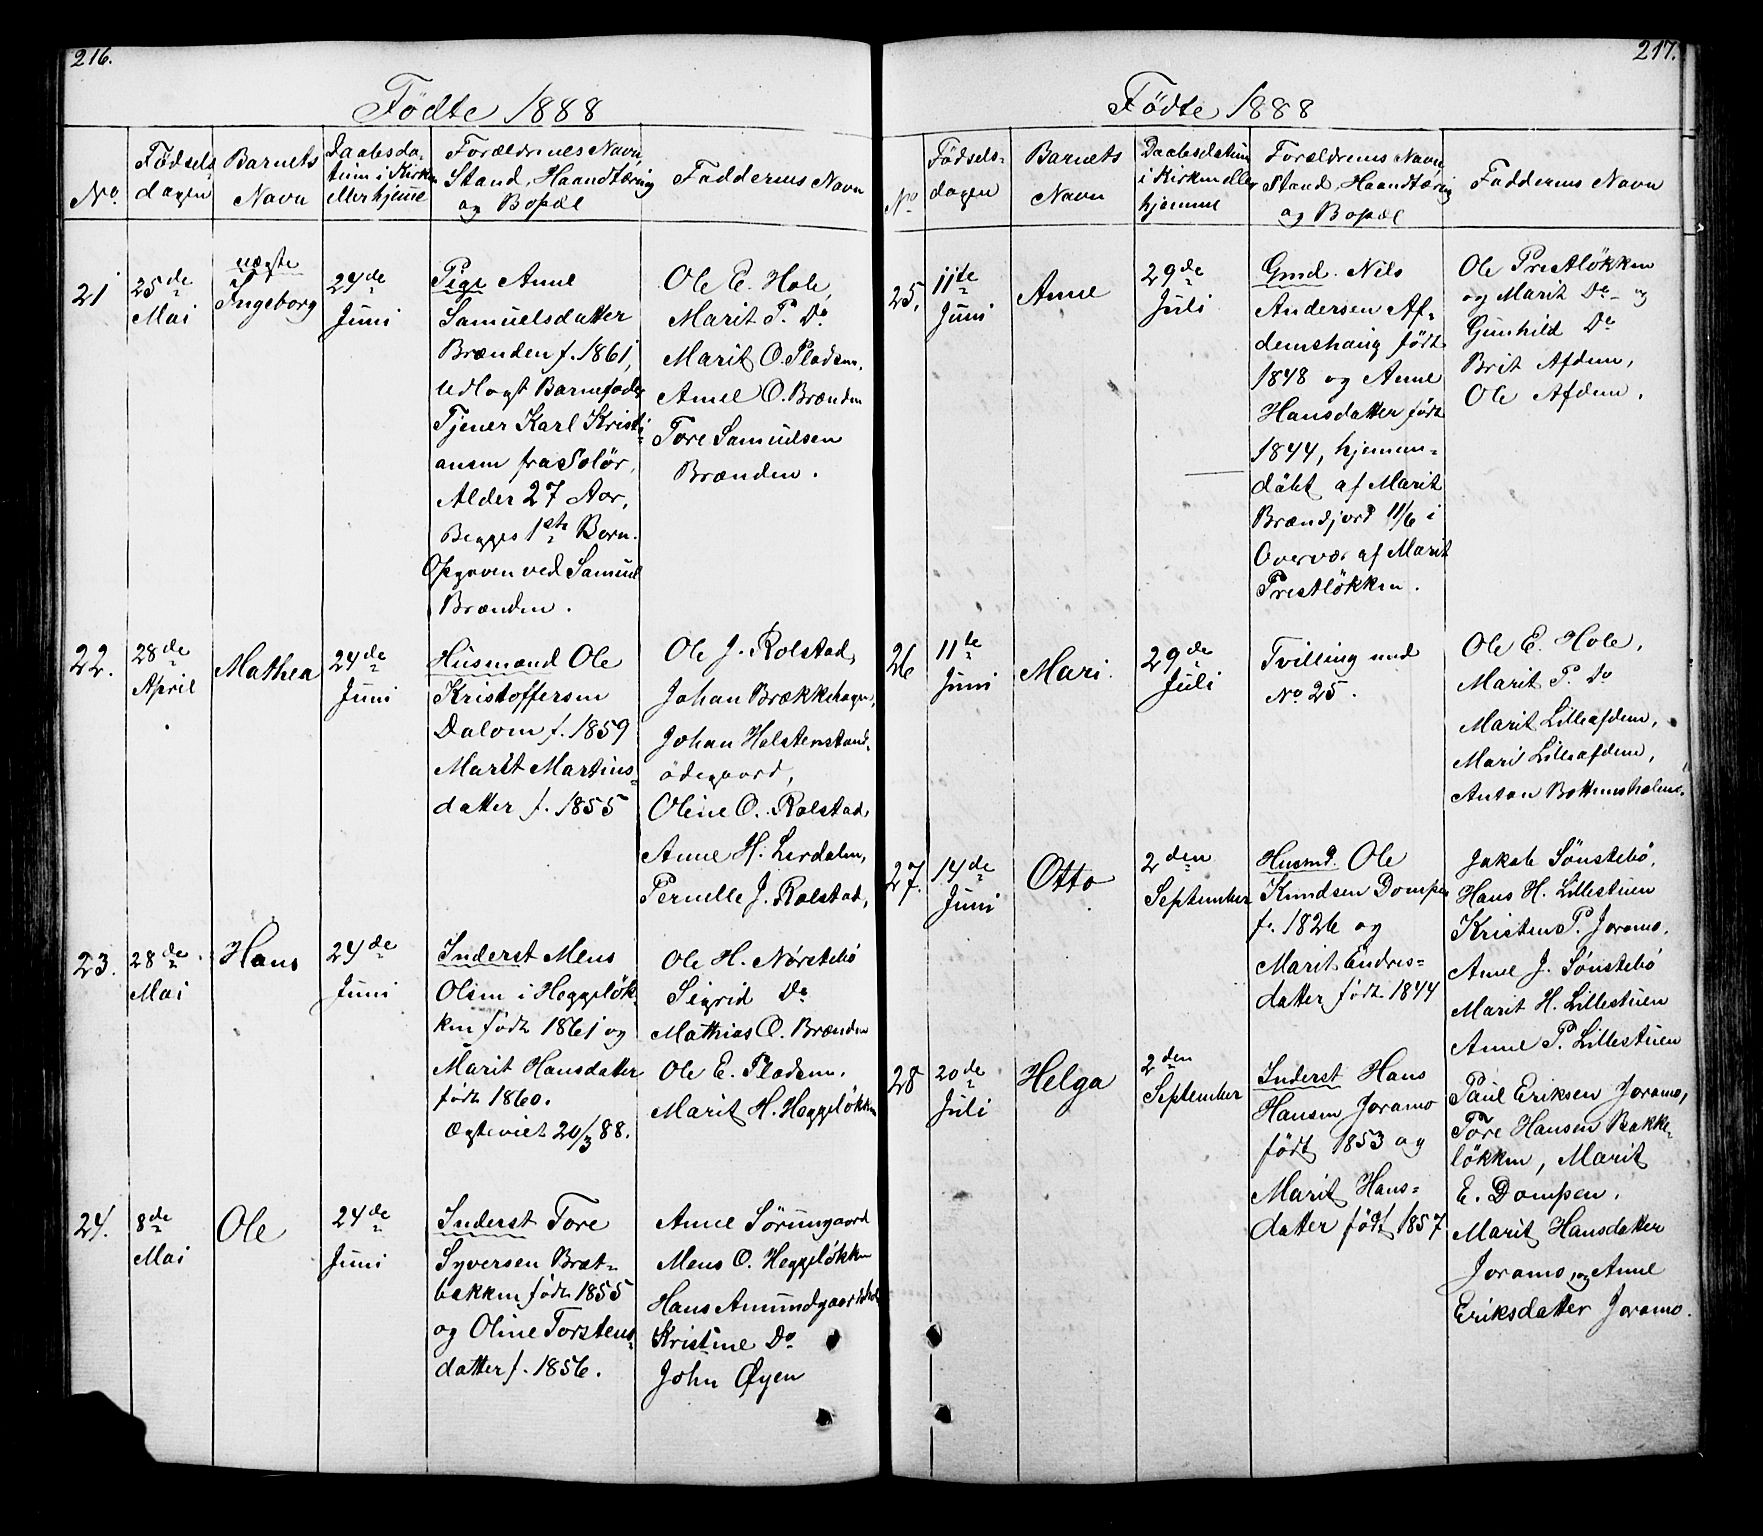 216.
Födte 1888
No.
Fødsels
dagen
Barnets
Navn
Daabsda-
tum i Kirken
eller hjeme
Forældrenes Navn,
Stand, Haandtæring
og Bopæl
Faddernes Navn
21
25de
Mai
uægte
Ingeborg
24de
Juni
Pige Anne
Samuelsdatter
Brænden f. 1861,
Udlagt Barnefader
Tjener Karl Kristi-
ansen fra Solör,
Alder 27 Aar,
Begges 1ste Barn.
Opgaven ved Samuel
Brænden.
Ole E. Hole,
Marit P. Do
Marit O. Pladsen,
Anne O. Brænden
Tore Samuelsen
Brænden.
22.
28de
April
Mathea
24de
Juni
Husmand Ole
Kristoffersen
Dalom f. 1859
Marit Martins-
datter f. 1855
Ole J. Rolstad,
Johan Brækkehagen,
Johan Holstenstand-
ödegaard,
Oline O. Rolstad,
Anne H. Lerdalen,
Pernelle J. Rolstad,
23.
28de
Mai
Hans
24de
Juni
Inderst Mens
Olsen i Heggelök-
ken födt 1861 og
Marit Hansdatter
födt 1860.
Ægteviet 20/3 88.
Ole H. Nørstebó
Sigrid Do
Mathias O. Brænden
Ole E. Pladsen,
Marit H. Heggelökken
24.
8de
Mai
Ole
24de
Juni
Inderst Tore
Syversen Bræt-
bakken födt 1855
og Oline Torstens-
datter f. 1856.
Anne Sörumgaard
Mens O. Heggelökken
Hans Amundgaard
Kristine Do
John Øyen
217.
Födte 1888
No
Fødsels-
dagen
Barnets
Navn
Daabsdatum
i Kirken eller
hjemme
Forældrenes Navn,
Stand, Haandtæring
og Bopæl
Faddernes Navn
25.
11te
Juni
Anne
29de
Juli
Gmd. Nils
Andersen Af-
demshaug födt
1848 og Anne
Hansdatter födt
1844, hjemme-
döbt af Marit
Brændjord 11/6 i
Overvær af Marit
Prestlökken.
Ole Prestlökken
og Marit Do og
Gunhild Do
Brit Afdem,
Ole Afdem.
26
11te
Juni
Mari.
29de
Juli
Tvilling med
No 25.
Ole E. Hole,
Marit P. Do
Marit Lilleafdem,
Mari Lilleafdem,
Anton Bottemsholen.
27.
14de
Juni
Otto
2den
September
Husmd. Ole
Knudsen Dompen
f. 1826 og
Marit Endres-
datter födt 1844
Jakob Sönstebö,
Hans H. Lillestuen
Kristen P. Joramo,
Anne J. Sönstebó
Marit H. Lillestuen
Anne P. Lillestuen
28
20de
Juli
Helga
2den
September
Inderst Hans
Hansen Joramo
födt 1853 og
Marit Hans-
datter födt 1857
Paul Eriksen Joramo,
Tore Hansen Bakke-
lökken, Marit
E. Dompen,
Marit Hansdatter
Joramo, og Anne
Eriksdatter Joramo.